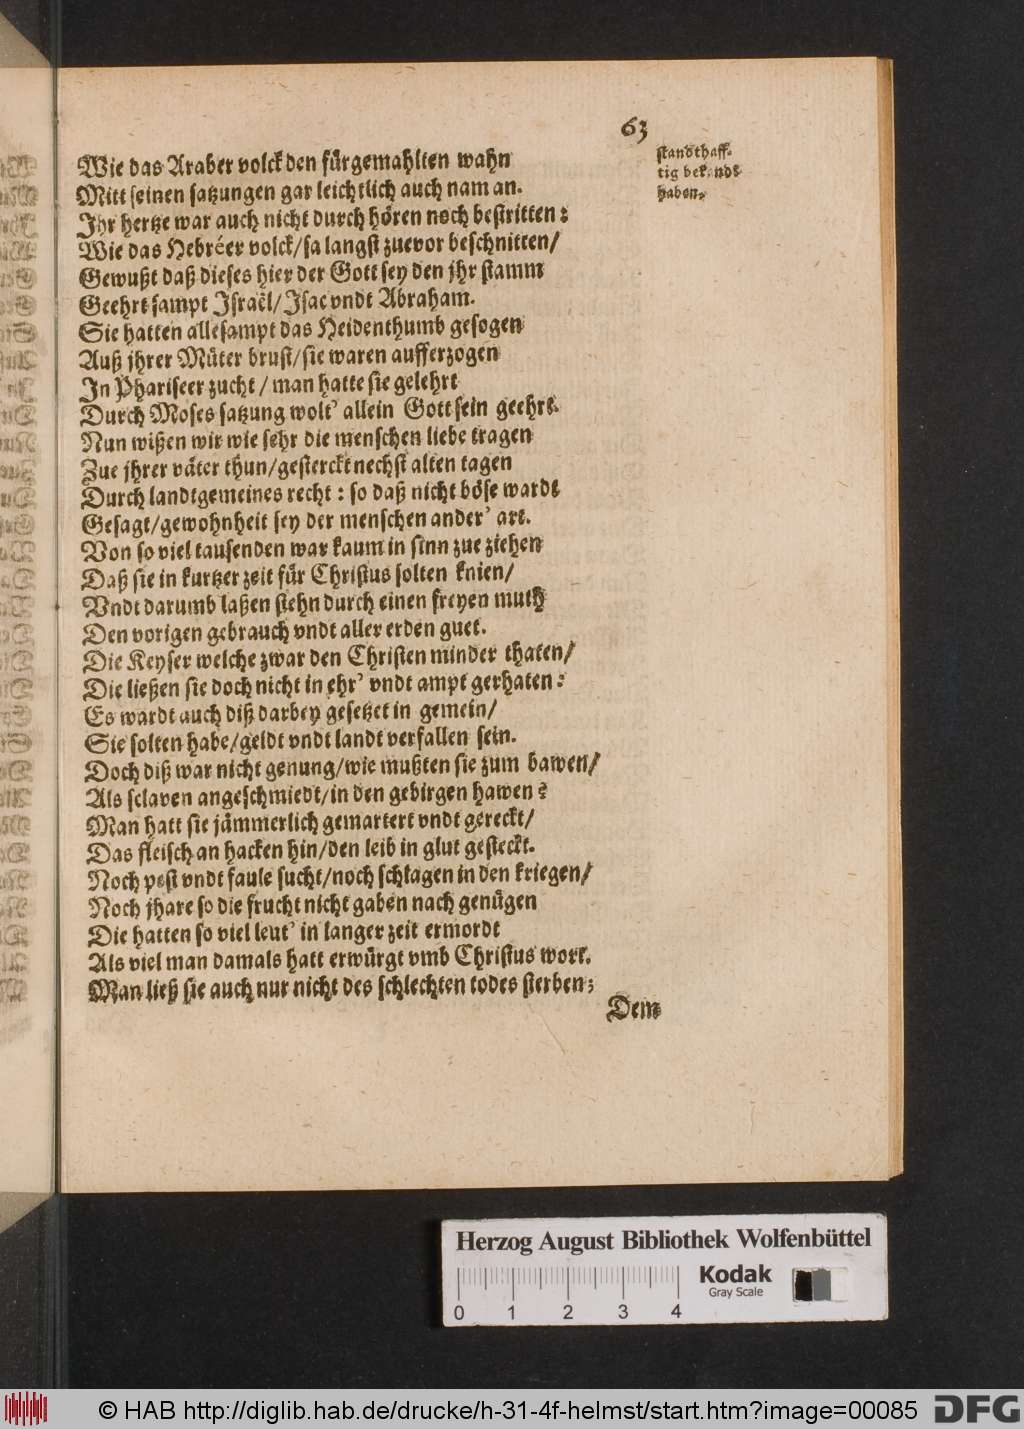 63
Wie das Araber volck den fürgemahlten wahn
Mitt seinen satzungen gar leichtlich auch nam an.
Ihr hertze war auch nicht durch hören noch bestritten:
Wie das Hebréer volck/sa langst zuevor beschnitten/
Gewußt daß dieses hier der Gott sey den jhr stamm
Geehrt sampt Israël/Isac vndt Abraham.
Sie hatten allesampt das Heidenthumb gesogen
Auß jhrer Müter brust/sie waren aufferzogen
In Phariseer zucht/man hatte sie gelehrt
Durch Moses satzung wolt' allein Gott sein geehrt.
Nun wißen wir wie sehr die menschen liebe tragen
Zue jhrer väter thun/gesterckt nechst alten tagen
Durch landtgemeines recht: so daß nicht böse wardt
Gesagt/gewohnheit sey der menschen ander' art.
Von so viel tausenden war kaum in sinn zue ziehen
Daß sie in kurtzer zeit für Christus solten knien/
Vndt darumb laßen stehn durch einen freyen muth
Den vorigen gebrauch vndt aller erden guet.
Die Keyser welche zwar den Christen minder thaten/
Die ließen sie doch nicht in ehr' vndt ampt gerhaten:
Es wardt auch diß darbey gesetzet in gemein/
Sie solten habe/geldt vndt landt verfallen sein.
Doch diß war nicht genung/wie mußten sie zum bawen/
Als sclaven angeschmiedt/in den gebirgen hawen?
Man hatt sie jämmerlich gemartert vndt gereckt/
Das fleisch an hacken hin/den leib in glut gesteckt.
Noch pest vndt faule sucht/noch schlagen in den kriegen/
Noch jhare so die frucht nicht gaben nach genügen
Die hatten so viel leut' in langer zeit ermordt
Als viel man damals hatt erwürgt vmb Christus wort.
Man ließ sie auch nur nicht des schlechten todes sterben;
Dem
standthaff-
tig bekandt
haben.
Herzog August Bibliothek Wolfenbüttel
Kodak
Gray Scale
0 1 2 3 4
© HAB http://diglib.hab.de/drucke/h-31-4f-helmst/start.htm?image=00085
DFG